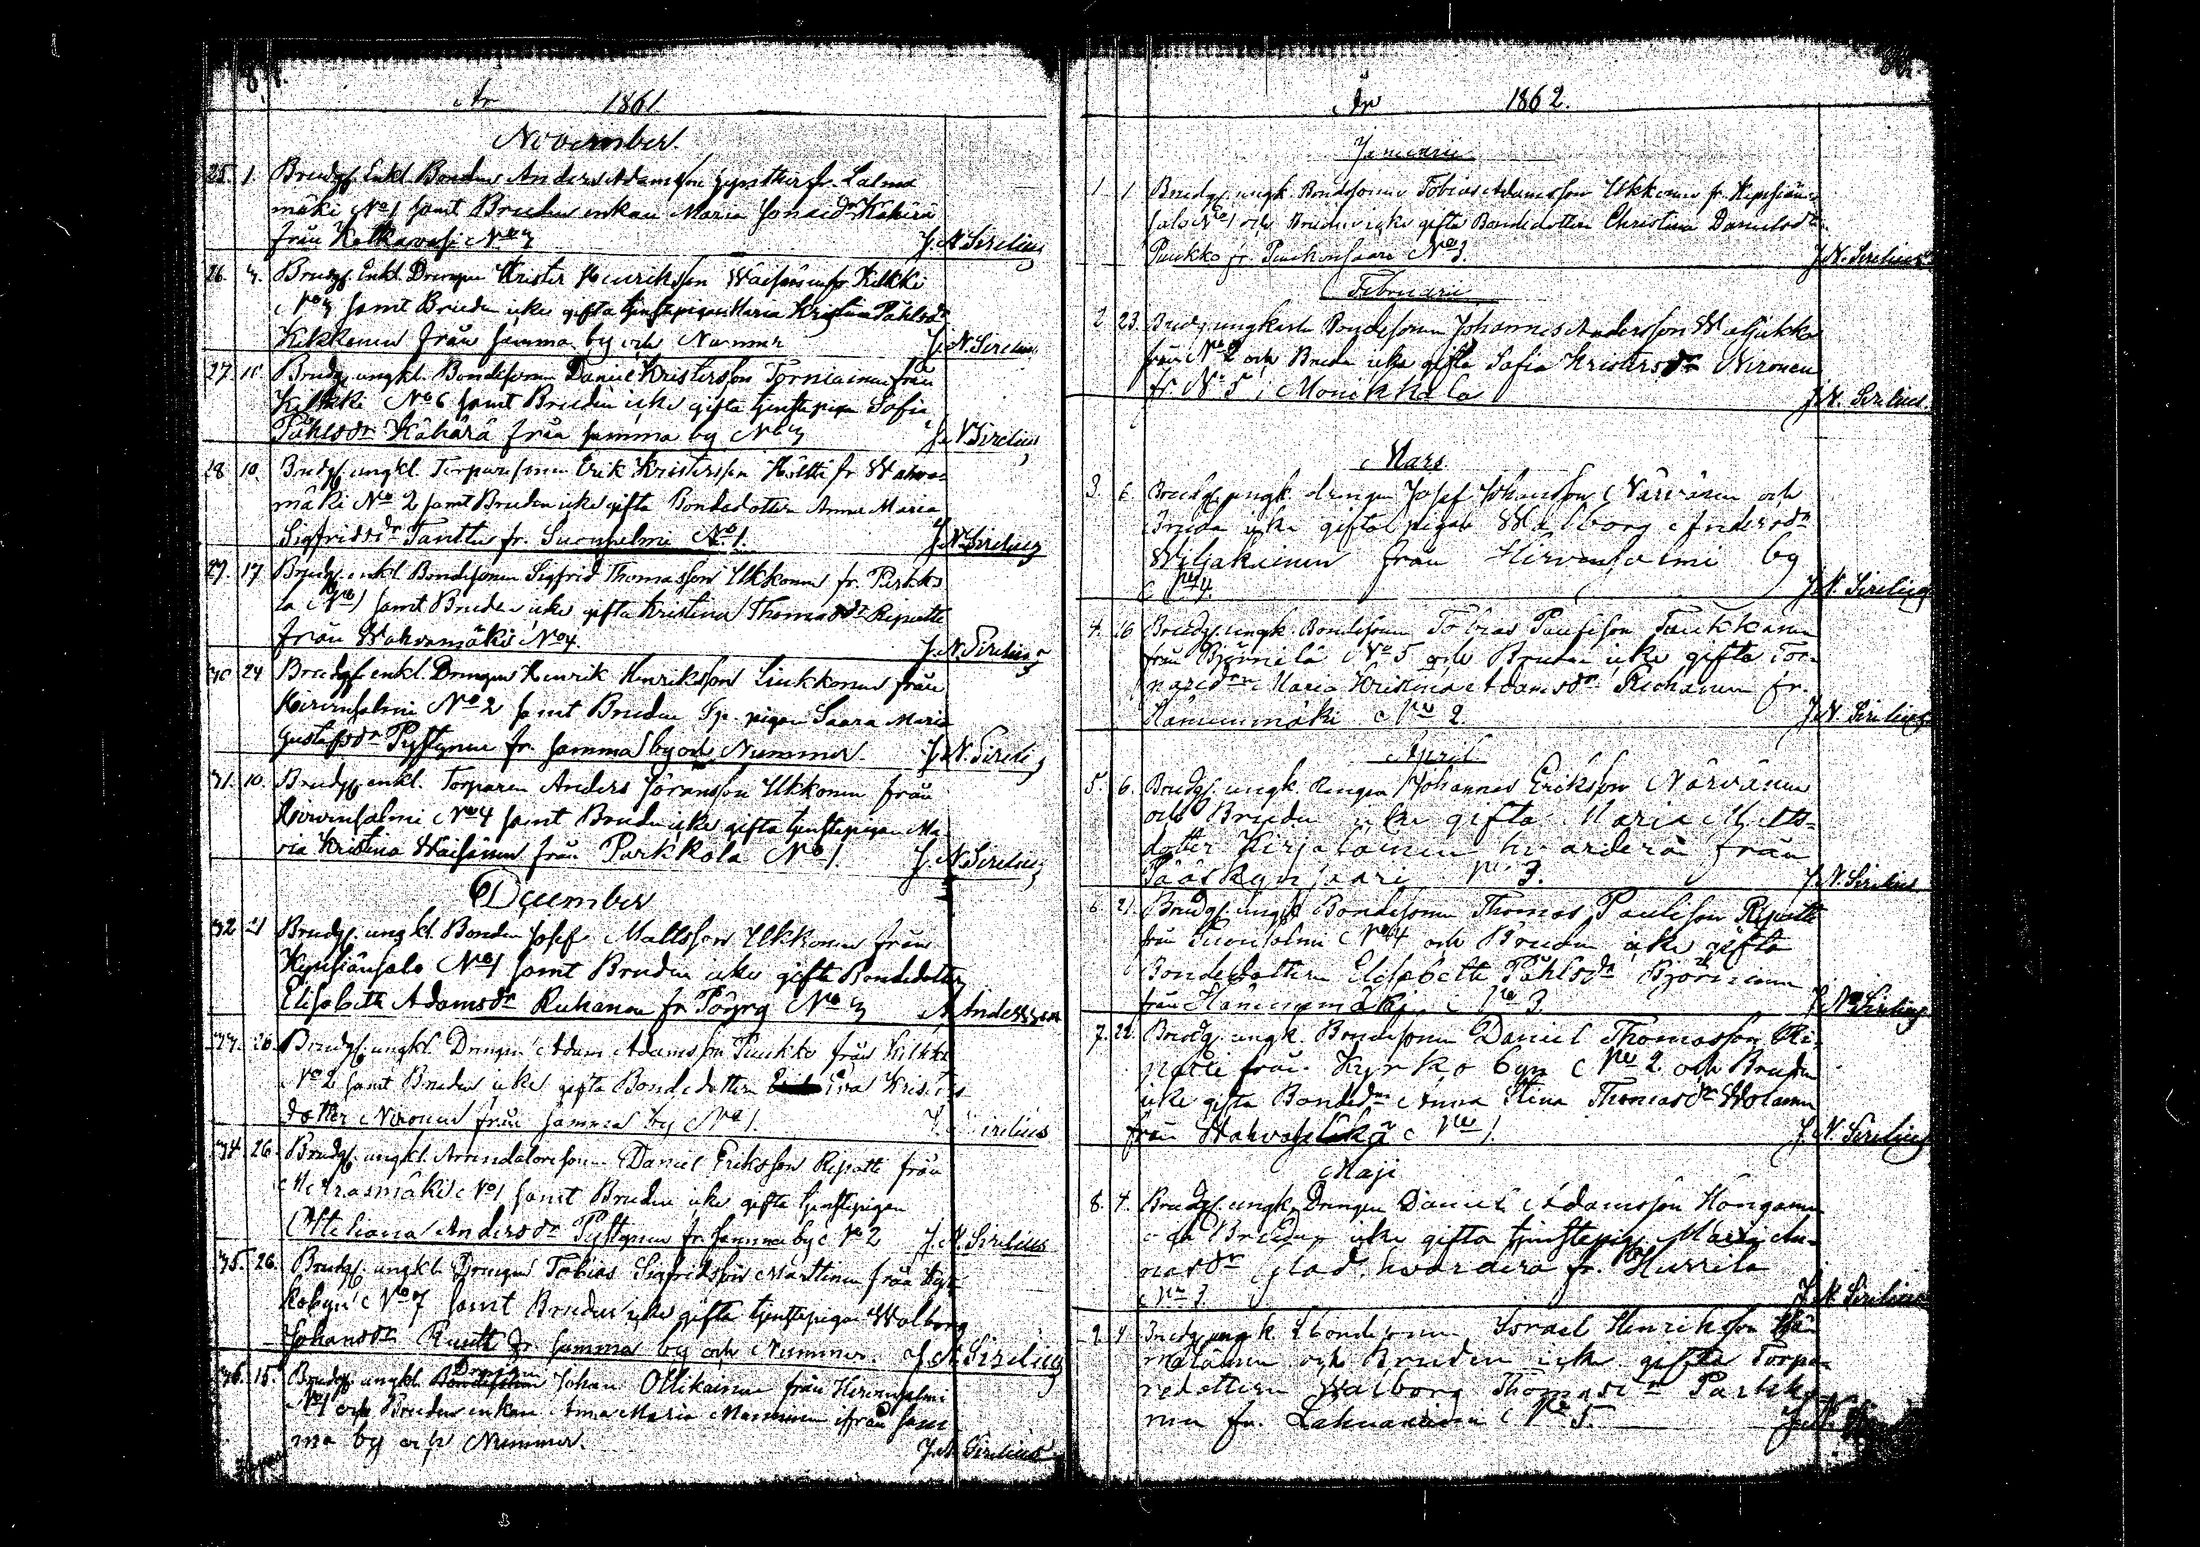 År 1861.
November.
25. 1. Brudg. Enkl. Bonden Anders Adamsson fr. Lalma
mäki No 1 samt Bruden enkan Maria Jonaedr Kähärä
från Kolkawasi No 3
J. N. Sirelius
26. 3. Brudg. Enkl. Drengen Krister Henriksson Wäisänen fr. Kilkki
No 3 samt Bruden icke gifta tjenstepigan Maria Kristina Påhlsdr
Kikkonen från samma by och Nummer
J. N. Sirelius
27. 10. Brudg. ungkl. Bondesonen Daniel Kristersson Torniainen från
Kilkki No 6 samt Bruden icke gifta tjenstepigan Sofia
Påhlsdr Kähärä från samma by No 3
J. N. Sirelius
28. 10. Brudg. ungkl. Torparesonen Erik Kristersson Hältti fr. Wahwa-
mäki No 2 samt Bruden icke gifta Bondedottern Anna Maria
Sigfridsdr Tanttu fr. Suonsalmi No 1.
J. N. Sirelius
29. 17 Brudg. enkl. Bondesonen Sigfrid Thomasson Ukkonen fr. Parkko
la No 1 samt Bruden icke gifta Kristina Thomasdr Ripatti
från Wahwamäki No 4.
J. N. Sirelius
30 24 Brudg. enkl. Drengen Henrik Henriksson Liukkonen från
Hirvensalmi No 2 samt Bruden pigan Saara Maria
Gustafsdr Pystynen fr. samma by och Nummer.
J. N. Sirelius
31. 10. Brudg. enkl. Torparen Anders Göransson Ukkonen från
Hirvensalmi No 4 samt Bruden icke gifta tjenstepigan Ma-
ria Kristina Wäisänen från Parkkola No 1.
J. N. Sirelius
December
32 Brudg. ungkl. Bonden Josef Mattsson Ukkonen från
Kypsiänsalo No 1 samt Bruden icke gifta Bondedottern
Elisabeth Adamsdr Ruhanen fr. Pöyry No 3
A. Andersson
33. 26. Brudg. ungkl. Drengen Adam Adamsson Puukko från Kilkki
No 2 samt Bruden icke gifta Bondedottern Eva Kristers
dotter Nironen från samma by No 1.
J. N. Sirelius
34 26. Brudg. ungkl. Arrendatoresonen Daniel Eriksson Ripatti från
Metrasmäki No 1 samt Bruden icke gifta tjenstepigan
Anders dr Pystynen fr. samma by No 2
J. N. Sirelius
35. 26. Brudg. ungkl. Drengen Tobias Sigfridsson Marttinen från Kyr-
kobyn No 7 samt Bruden icke gifta tjenstepigan Walborg
Johansdr Ruutti fr. samma by och Nummer.
J. N. Sirelius
36. 15. Brudg. ungkl. Drengen Johan Ollikainen från Hirvensalmi
No 1 och Bruden enkan Anna Maria Manninen ifrån sam
ma by och Nummer.
J. N. Sirelius
År 1862.
Januarii
1 1 Brudg. ungk. Bondesonen Tobias Adamsson Ukkonen fr. Kypsiän-
salo No 1 och Bruden icke gifta Bondedottern Christina Danielsdr
Puukko fr. Puukonsaari No 3.
J. N. Sirelius
Februarii
2 23. Brudg. ungkarlen Bondesonen Johannes Andersson Waljakka
från No 2 och Bruden icke gifta Sofia Kristersdr Nironen
fr. No 5 i Monikkala
J. N. Sirelius
Mars
3. 6. Brudg. ungk. drengen Josef Johansson Närvänen och
Bruden icke gifta pigan Walborg Andersdr
Wiljakainen från Hirvensalmi by
No 4.
J. N. Sirelius
4. 16 Brudg. ungk. Bondesonen Tobias Paulsson Taukkanen
från Björnilä No 5 och Bruden icke gifta Tor-
paredrn Maria Kristina Adamsdr Kuhanen fr.
Hämeenmäki No 2.
J. N. Sirelius
April
5. 6. Brudg. ungk. Drengen Johannes Eriksson Närvänen
och Bruden icke gifta Maria Matts-
dotter Kirjalainen hvardera från
Pääskynsaari No 3.
J. N. Sirelius
6 21. Brudg. ungk. Bondesonen Thomas Paulsson Ripatti
från Suonsalmi No 4 och Bruden icke gifta
Bondedottern Elisabeth Påhlsdr Björninen
från Hämeenmäki No 3.
J. N. Sirelius
7. 22. Brudg. ungk. Bondesonen Daniel Thomasson Ri-
patti från Kyrkobyn No 2 och Bruden
icke gifta Bondedrn Anna Stina Thomasdr Wolanen
från Wahvaselkä No 1.
J. N. Sirelius
Maji
8. 4. Brudg. ungk. Drengen Daniel Adamsson Hongonen
och Bruden icke gifta tjenstepig. Maria An-
narsdr Glad, hvardera fr. Hurrila
No 3
J. N. Sirelius
9 4 Brudg. ungk. Bondesonen Israel Henriksson Hä-
mäläinen och Bruden icke gifta Torpa-
redottern Walborg Thomasdr Parkko-
nen fr. Lahnaniemi No 5.